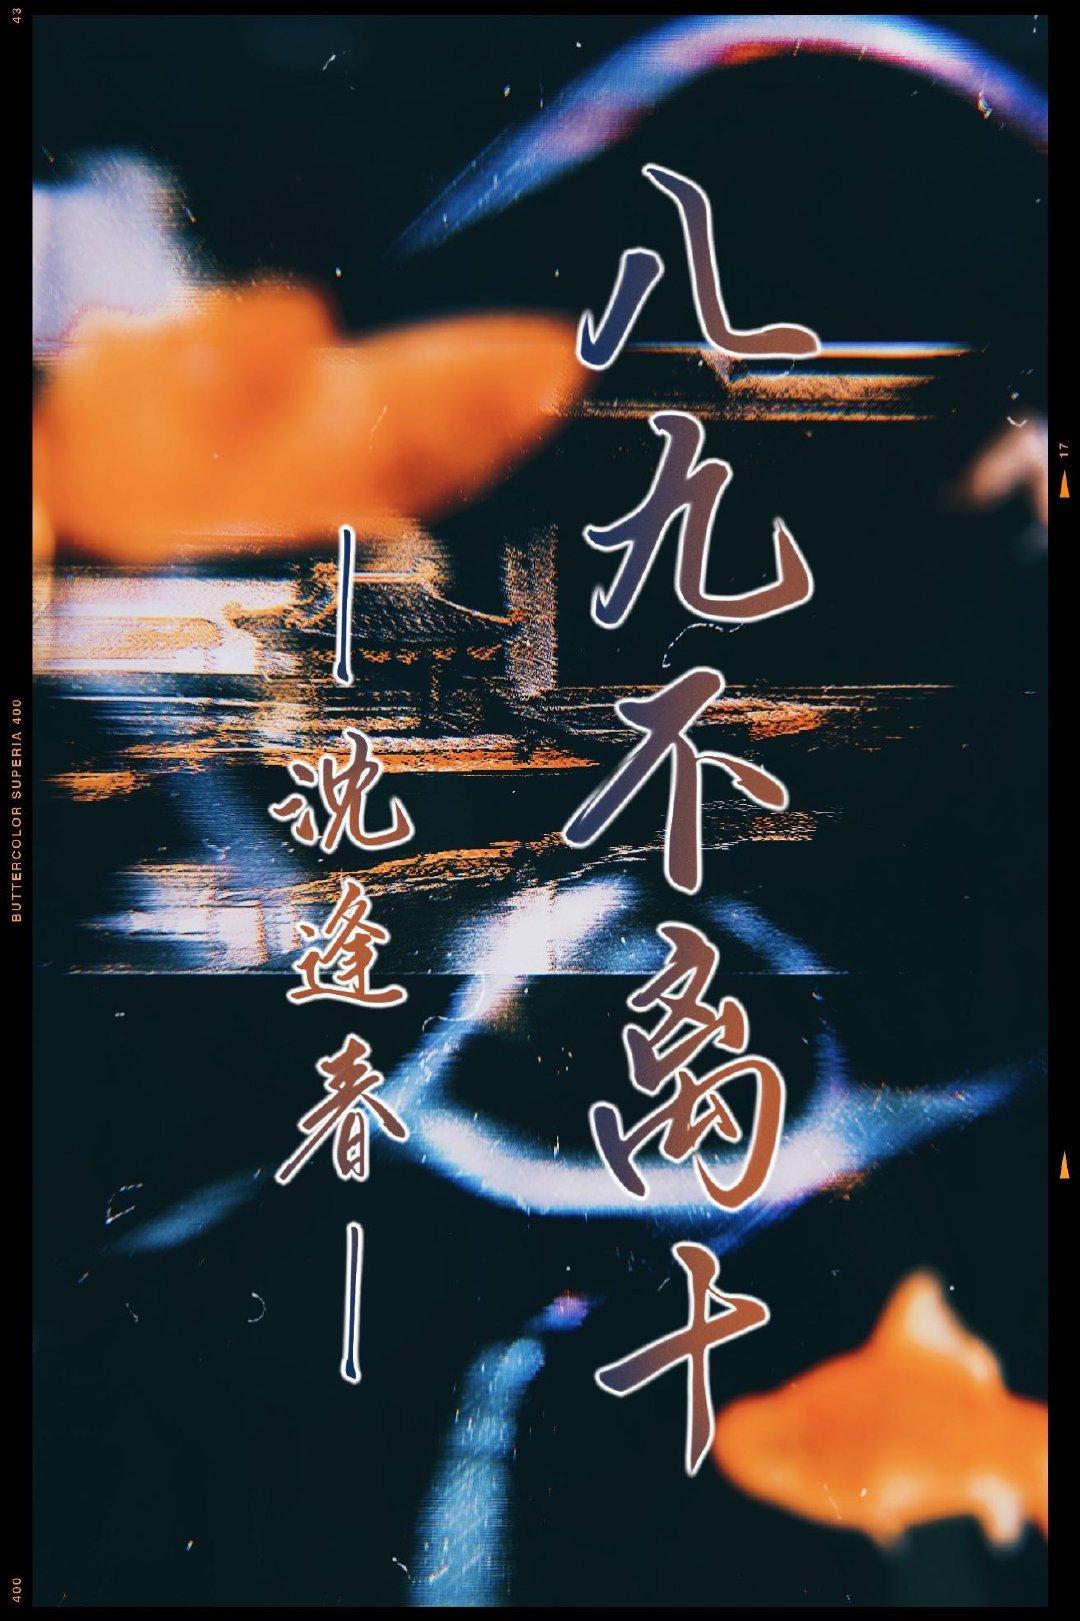 八九不离十
—沈逢春—
43
BUTTERCOLOR SUPERIA 400
400
17